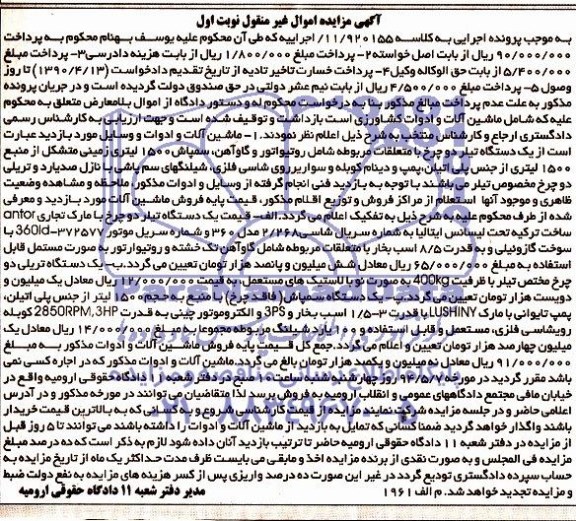 آگهی مزایده اموال غیر منقول نوبت اول
به موجب پرونده اجرایی به کلاسه 11/920155/ اجراییه که طی آن محکوم علیه یوسف بهنام محکوم به پرداخت
90/000/000 ریال از بابت اصل خواسته 2- پرداخت مبلغ 1/800/000 ریال از بابت هزینه دادرسی 3- پرداخت مبلغ
5/400/000 از بابت حق الوکاله وکیل 4- پرداخت خسارت تاخیر تادیه از تاریخ تقدیم دادخواست (1390/4/13) تا روز
وصول 5- پرداخت مبلغ 4/500/000 ریال از بابت نیم عشر دولتی در حق صندوق دولت گردیده است و در جریان پرونده
مذکور به علت عدم پرداخت مبالغ مذکور بنا به درخواست محکوم له و دستور دادگاه از اموال بلامعارض متعلق به محکوم
علیه که شامل ماشین آلات و ادوات کشاورزی است بازداشت و توقیف شده است و جهت ارزیابی به کارشناس رسمی
دادگستری ارجاع و کارشناس منتخب به شرح ذیل اعلام نظر نمودند. 1- ماشین آلات و ادوات و وسایل مورد بازدید عبارت
است از یک دستگاه تیلر دو چرخ با متعلقات مربوطه شامل روتیواتور و گاوآهن، سمپاش 1500 لیتری زمینی متشکل از منبع
1500 لیتری از جنس پلی اتیلن، پمپ و دینام کوبله و سوار بر روی شاسی فلزی، شیلنگهای سم پاشی با نازل صدیاردو تریلی
دو چرخ مخصوص تیلر می باشند با توجه به بازدید فنی انجام گرفته از وسایل و ادوات مذکور، ملاحظه و مشاهده وضعیت
ظاهری و موجود آنها استعلام از مراکز فروش و توزیع اقلام مذکور، قیمت پایه فروش ماشین آلات مورد بازدید و معرفی
شده از طرف محکوم علیه به شرح ذیل به تفکیک اعلام می گردد. الف- قیمت یک دستگاه تیلر دو چرخ با مارک تجاری antor
ساخت ترکیه تحت لیسانس ایتالیا به شماره سریال شاسی 2/268 مدل 360 و شماره سریل موتور 372577-360ld با
سوخت گازوئیلی و به قدرت 8/5 اسب بخار با متعلقات مربوطه شامل گاوآهن تک خشته و روتیوارتور به صورت مستمل قابل
استفاده به مبلغ 65/000/000 ریال معادل شش میلیون و پانصد هزار تومان تعیین می گردد. ب- یک دستگاه تریلی دو
چرخ مختص تیلر با ظرفیت 400kg به صورت نو با لاستیک های مستعمل، به قیمت 12/000/000 ریال معادل یک میلیون و
دویست هزار تومان تعیین می گردد. پ- یک دستگاه سمپاش (فاقد چرخ) با منبع به حجم 1500 لیتر از جنس پلی اتیلن،
پمپ تایوانی با مارک LUSHINY با قدرت 3-1/5 اسب بخار و 3PS و الکتروموتور چینی به قدرت 2850RPM,3HP کوبله
روشاسی فلزی، مستعمل و قابل استفاده و 100 یارد شیلنگ مربوطه مجموعا به مبلغ 14/000/000 ریال معادل یک
میلیون چهارصد هزار تومان تعیین و اعلام می گردد. جمع کل قیمت پایه فروش ماشین آلات و ادوات مذکور به مبلغ
91/000/000 ریال معادل نه میلیون و یکصد هزار تومان بالغ می گردد. ماشین آلات و ادوات مذکور که در اجاره کسی نمی
باشد مقرر گردید در مورخه 94/5/7 روز چهارشنبه ساعت 10 صبح در دفتر شعبه 11 دادگاه حقوقی ارومیه واقع در
خیابان مافی مجتمع دادگاههای عمومی و انقلاب ارومیه به فروش برسد لذا متقاضیان می توانند در مورخه مذکور و در آدرس
اعلامی حاضر و در جلسه مزایده شرکت نمایند مزایده از قیمت کارشناسی شروع و به کسانی که به بالاترین قیمت خریدار
باشند واگذار خواهد گردید ضمنا کسانی که تمایل به بازدید از ماشین آلات و ادوات را داشته باشند می توانند تا 5 روز قبل
از مزایده در دفتر شعبه 11 دادگاه حقوقی ارومیه حاضر تا ترتیب بازدید آنان داده شود لازم به ذکر است که ده درصد مبلغ
مزایده فی المجلس و به صورت نقدی از برنده مزایده اخذ و مابقی می بایست ظرف مدت حداکثر یک ماه از تاریخ مزایده به
حساب سپرده دادگستری تودیع گردد در غیر این صورت ده درصد واریزی پس از کسر هزینه های مزایده به نفع دولت ضبط
و مزایده تجدید خواهد شد. م الف 1961
مدیر دفتر شعبه 11 دادگاه حقوقی ارومیه